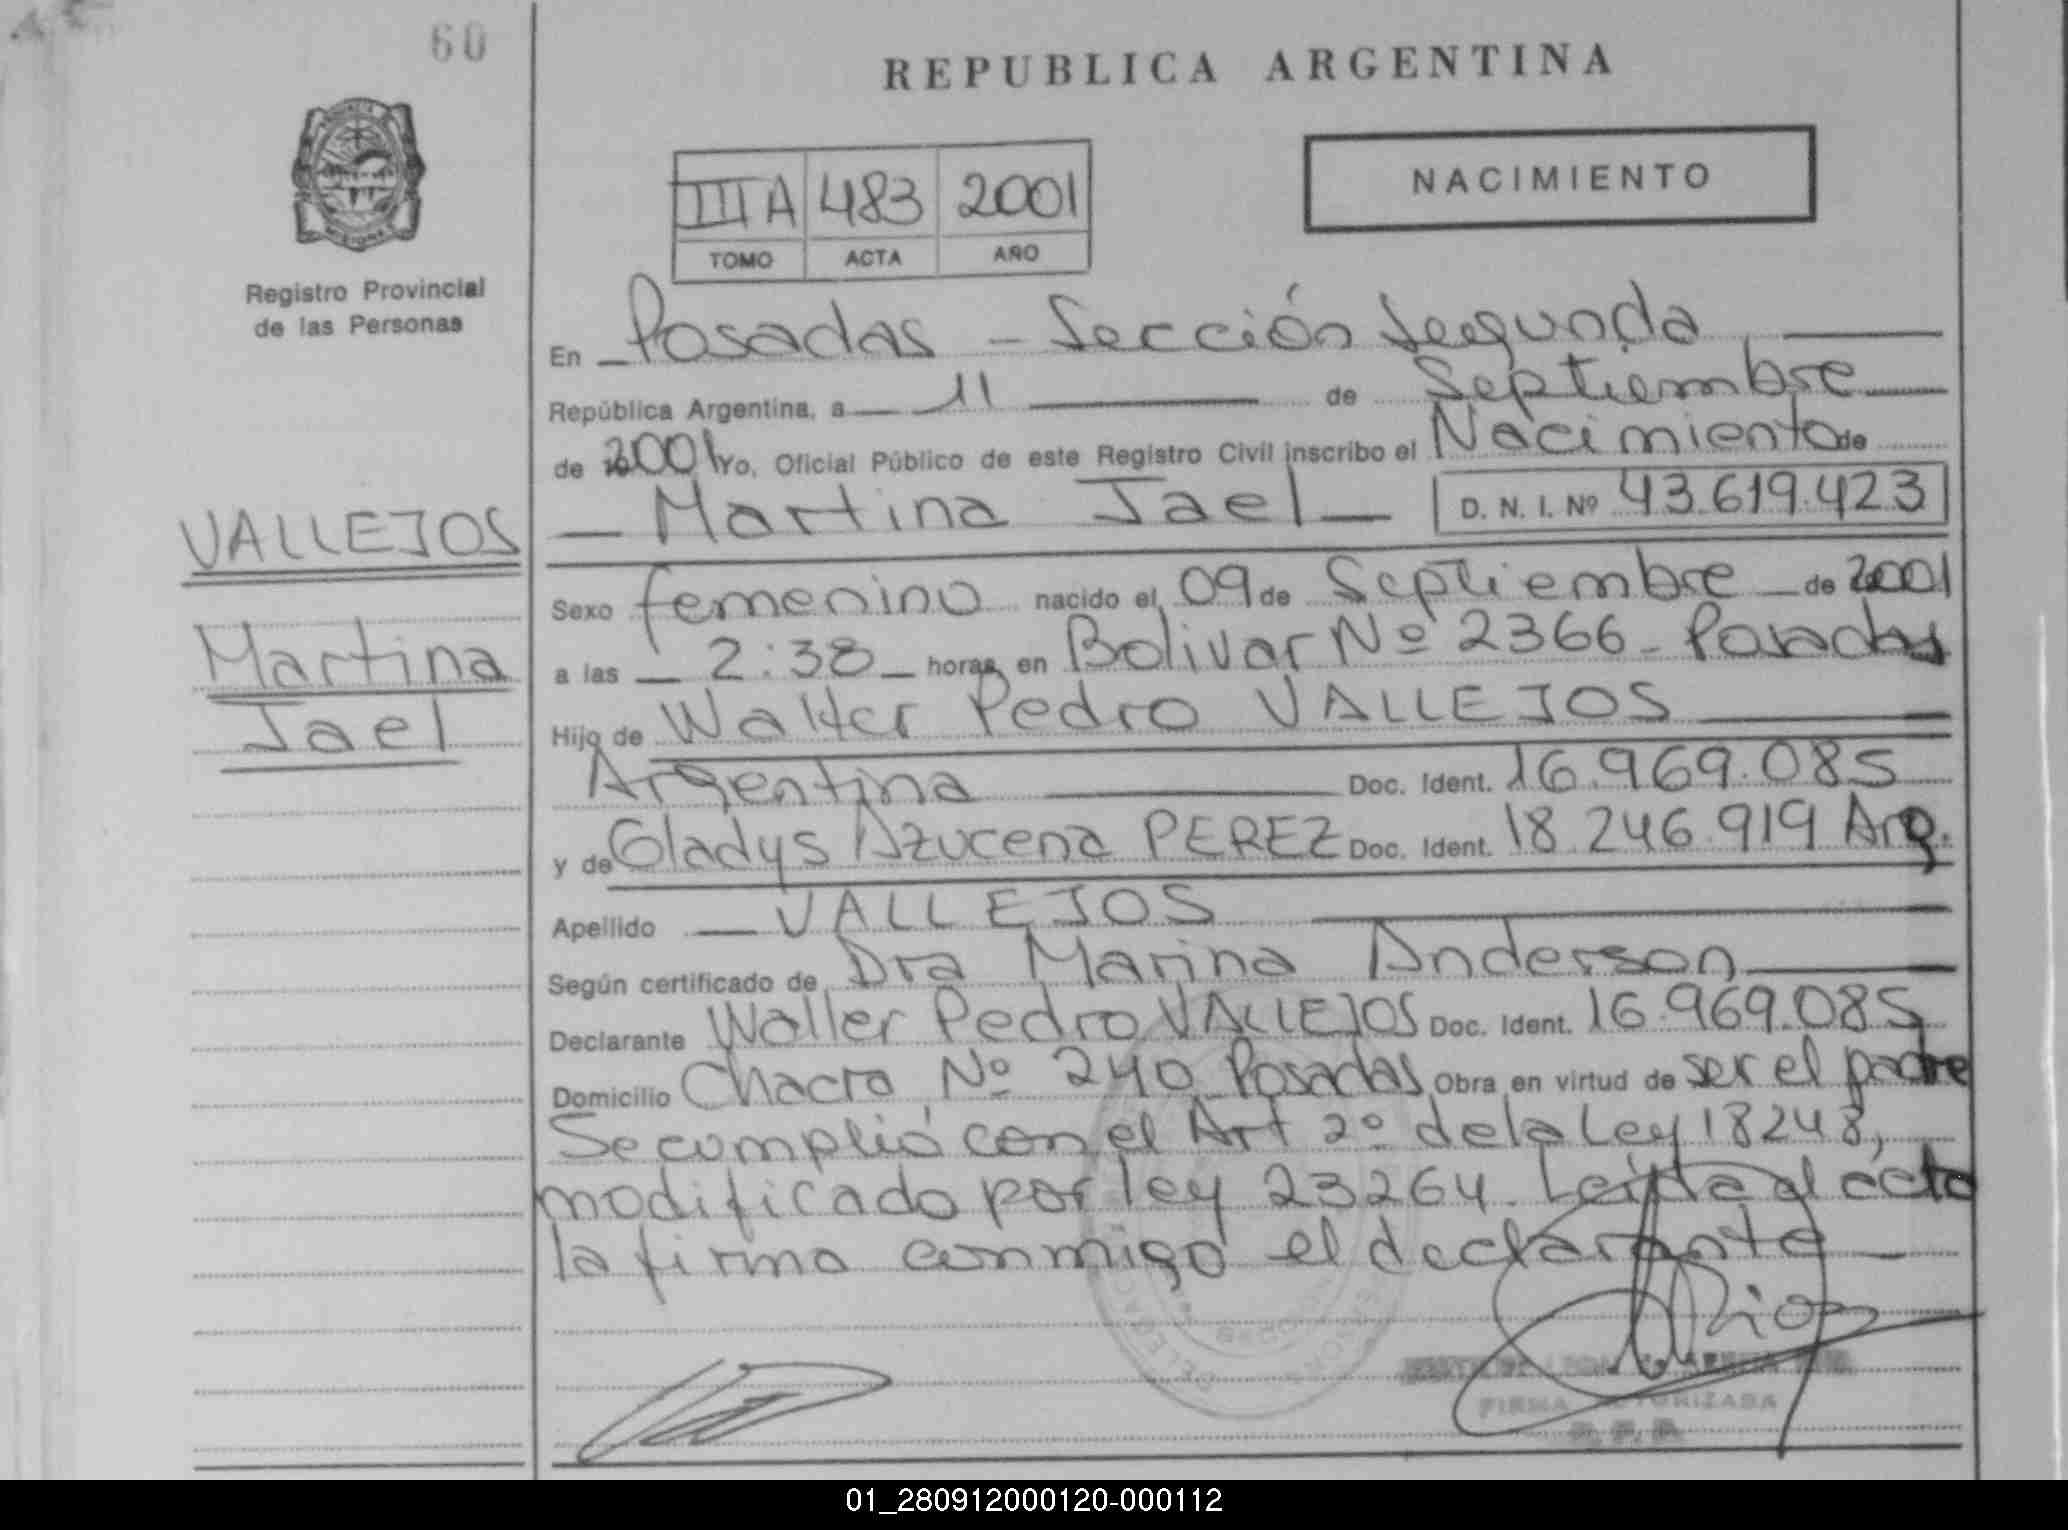 60
REPUBLICA ARGENTINA
NACIMIENTO
IIIA 483 2001
TOMO ACTA AÑO
Registro Provincial
de las Personas
En Posadas - Sección Segunda
República Argentina, a 11 de Septiembre
de 2001 Yo, Oficial Público de este Registro Civil inscribo el Nacimiento de
Martina Jael D. N. I. Nº 43.619.423
VALLEJOS
Martina
Jael
Sexo femenino nacido el 09 de Septiembre de 2001
a las 2:38 horas, en Bolivar Nº 2366 - Posadas
Hijo de Walter Pedro VALLEJOS
Argentina Doc. Ident. 16.969.085
y de Gladys Azucena PEREZ Doc. Ident. 18.246.919 Arg.
Apellido VALLEJOS
Según certificado de Dra Marina Anderson
Declarante Walter Pedro VALLEJOS Doc. Ident. 16.969.085
Domicilio Chacra Nº 240 Posadas Obra en virtud de ser el padre
Se cumplió con el Art 2º de la Ley 18248,
modificado por ley 23264. Leída el acta
la firma conmigo el declarante
FIRMA AUTORIZADA
01_280912000120-000112